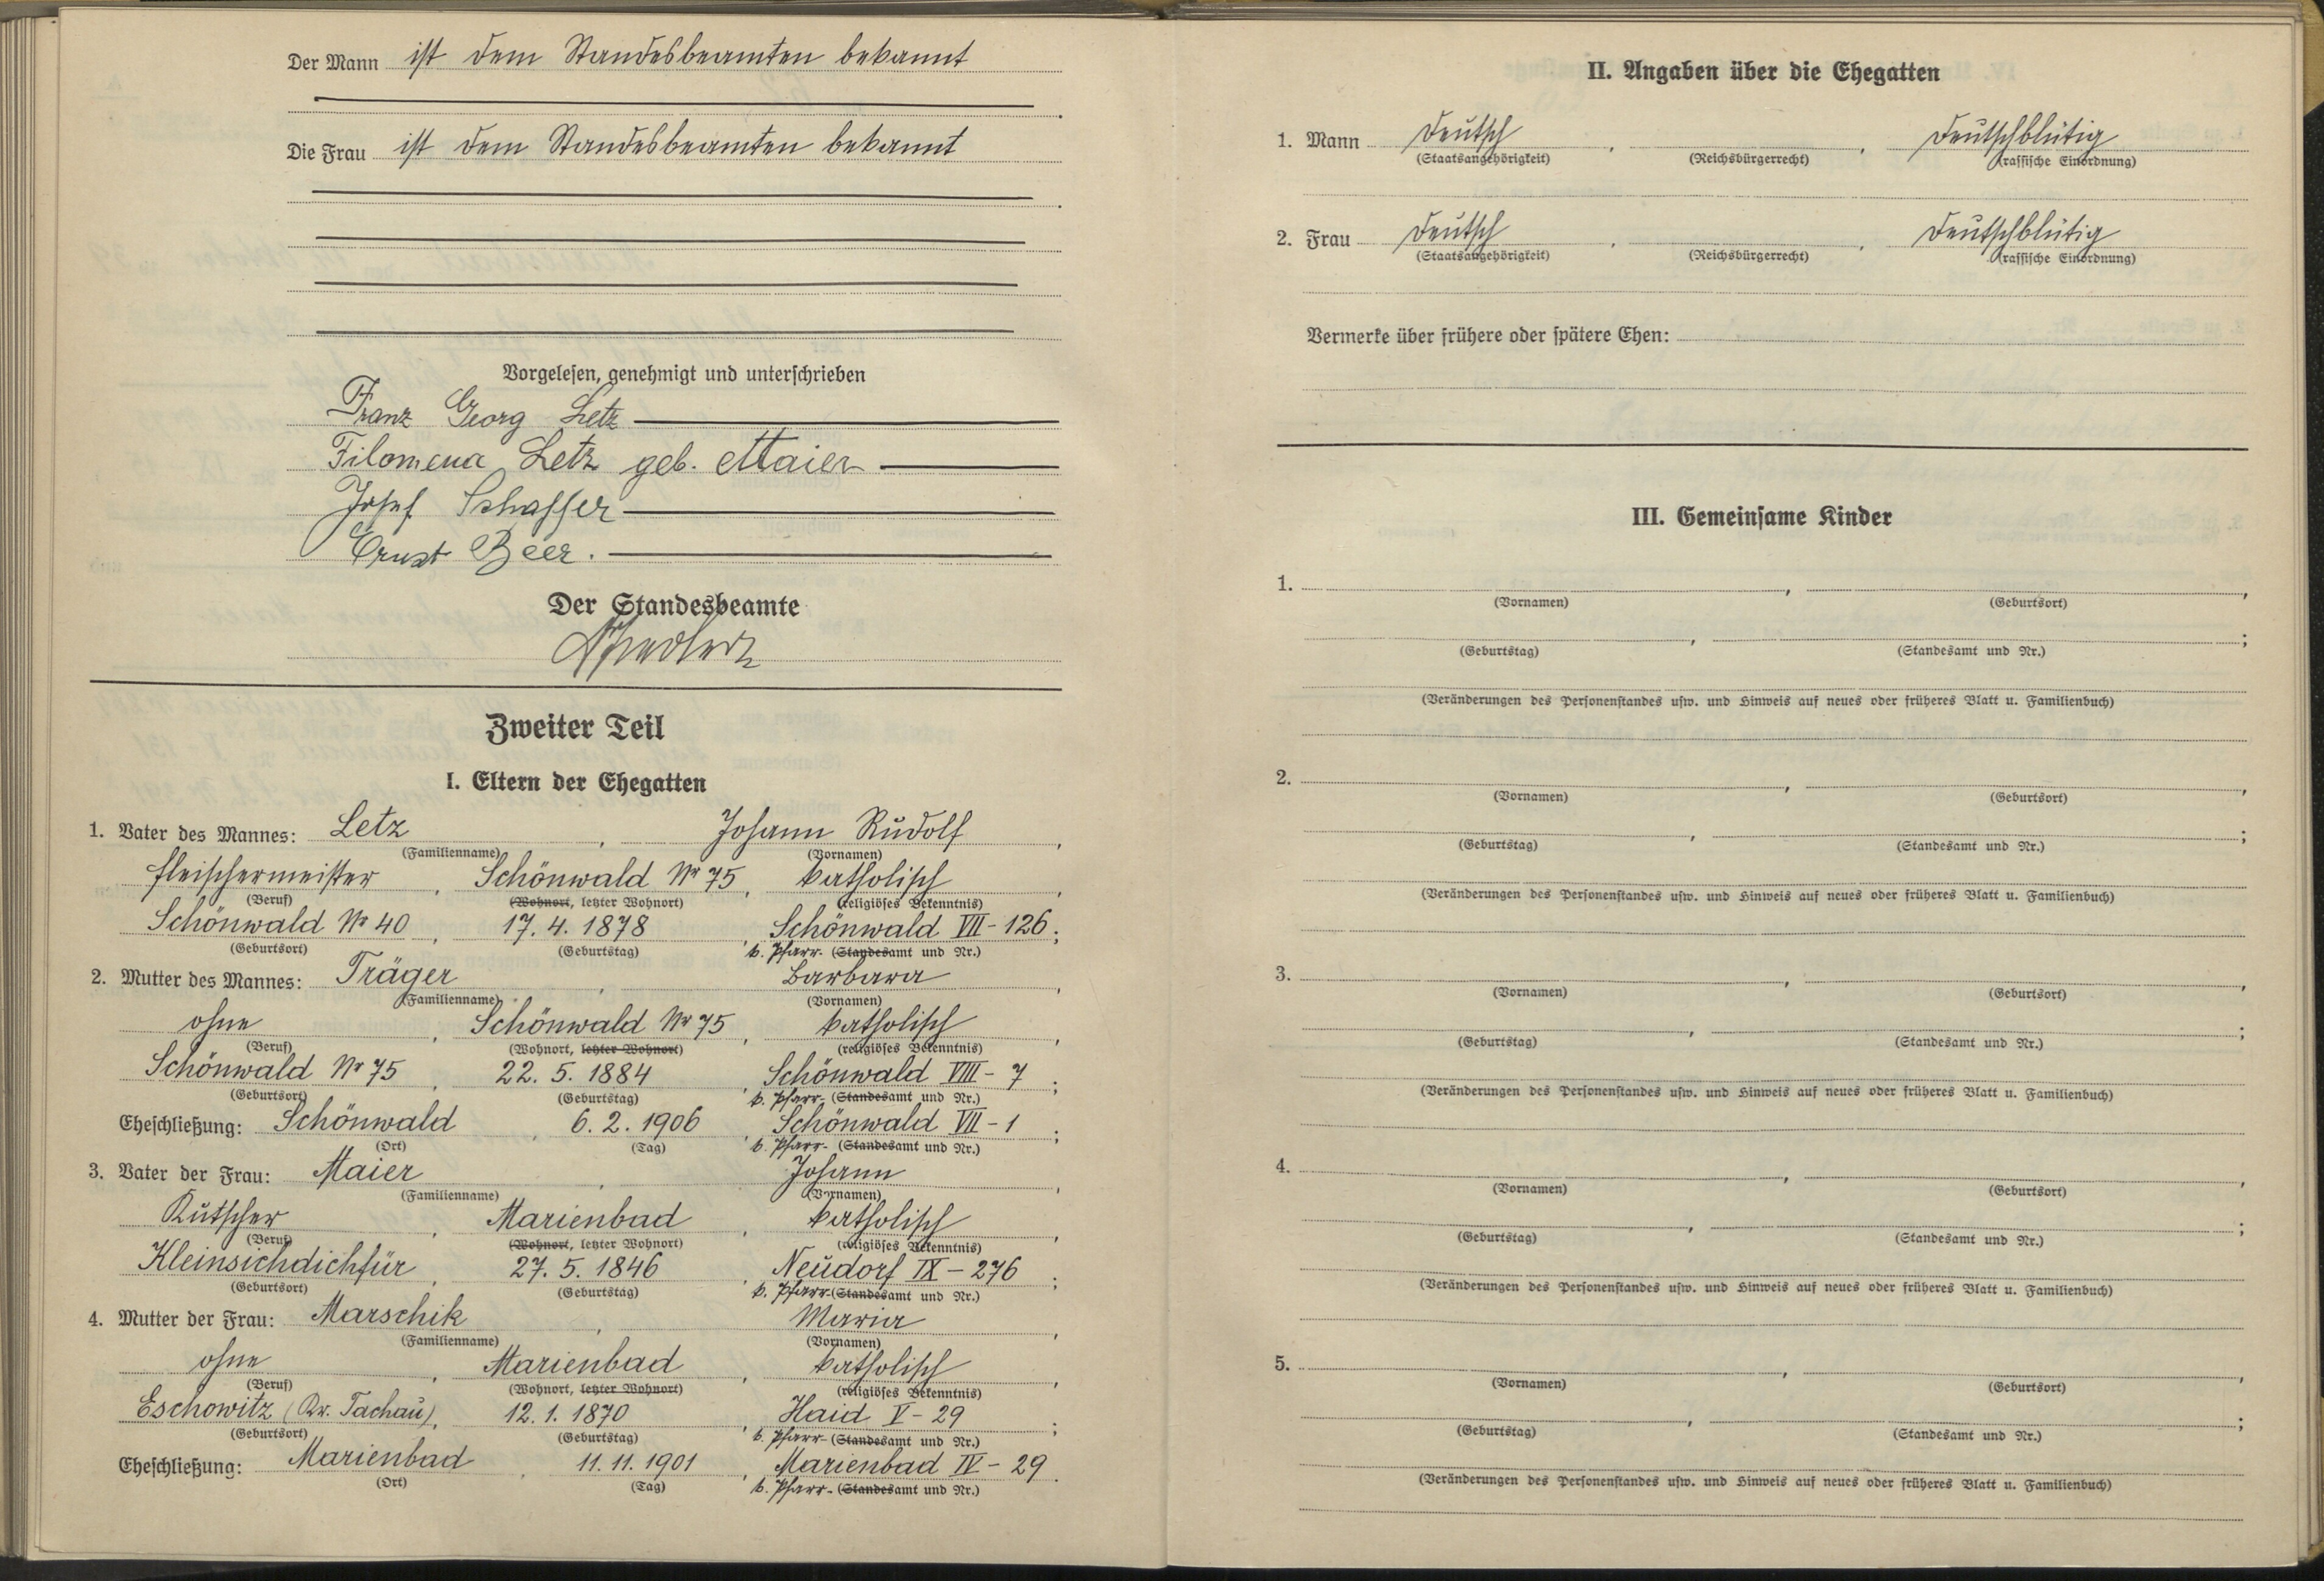 Der Mann ist dem Standesbeamten bekannt
Die Frau ist dem Standesbeamten bekannt
Vorgelesen, genehmigt und unterschrieben
Franz Georg Letz
Filomena Letz geb. Maier
Josef Schaffer
Ernst Beer.
Der Standesbeamte
Zweiter Teil
I. Eltern der Ehegatten
1. Vater des Mannes: Letz, Johann Rudolf,
(Familienname) (Vornamen)
Fleischermeister, Schönwald Nr 75, katholisch,
(Beruf) (Wohnort, letzter Wohnort) (religiöses Bekenntnis)
Schönwald Nr 40, 17. 4. 1878, Schönwald VII - 126;
(Geburtsort) (Geburtstag) k. Pfarr- (Standesamt und Nr.)
2. Mutter des Mannes: Träger, Barbara,
(Familienname) (Vornamen)
ohne, Schönwald Nr 75, katholisch,
(Beruf) (Wohnort, letzter Wohnort) (religiöses Bekenntnis)
Schönwald Nr 75, 22. 5. 1884, Schönwald VIII - 7;
(Geburtsort) (Geburtstag) k. Pfarr- (Standesamt und Nr.)
Eheschließung: Schönwald, 6. 2. 1906, Schönwald VII - 1;
(Ort) (Tag) k. Pfarr- (Standesamt und Nr.)
3. Vater der Frau: Maier, Johann,
(Familienname) (Vornamen)
Kutscher, Marienbad, katholisch,
(Beruf) (Wohnort, letzter Wohnort) (religiöses Bekenntnis)
Kleinsichdichfür, 27. 5. 1846, Neudorf IX - 276;
(Geburtsort) (Geburtstag) k. Pfarr- (Standesamt und Nr.)
4. Mutter der Frau: Marschik, Maria,
(Familienname) (Vornamen)
ohne, Marienbad, katholisch,
(Beruf) (Wohnort, letzter Wohnort) (religiöses Bekenntnis)
Eschowitz (Kr. Tachau), 12. 1. 1870, Haid V - 29;
(Geburtsort) (Geburtstag) k. Pfarr- (Standesamt und Nr.)
Eheschließung: Marienbad, 11. 11. 1901, Marienbad IV - 29.
(Ort) (Tag) k. Pfarr- (Standesamt und Nr.)
II. Angaben über die Ehegatten
1. Mann Deutsch, , Deutschblütig
(Staatsangehörigkeit) (Reichsbürgerrecht) (rassische Einordnung)
2. Frau Deutsch, , Deutschblütig
(Staatsangehörigkeit) (Reichsbürgerrecht) (rassische Einordnung)
Vermerke über frühere oder spätere Ehen:
III. Gemeinsame Kinder
1. , ,
(Vornamen) (Geburtsort)
, ;
(Geburtstag) (Standesamt und Nr.)
(Veränderungen des Personenstandes usw. und Hinweis auf neues oder früheres Blatt u. Familienbuch)
2. , ,
(Vornamen) (Geburtsort)
, ;
(Geburtstag) (Standesamt und Nr.)
(Veränderungen des Personenstandes usw. und Hinweis auf neues oder früheres Blatt u. Familienbuch)
3. , ,
(Vornamen) (Geburtsort)
, ;
(Geburtstag) (Standesamt und Nr.)
(Veränderungen des Personenstandes usw. und Hinweis auf neues oder früheres Blatt u. Familienbuch)
4. , ,
(Vornamen) (Geburtsort)
, ;
(Geburtstag) (Standesamt und Nr.)
(Veränderungen des Personenstandes usw. und Hinweis auf neues oder früheres Blatt u. Familienbuch)
5. , ,
(Vornamen) (Geburtsort)
, ;
(Geburtstag) (Standesamt und Nr.)
(Veränderungen des Personenstandes usw. und Hinweis auf neues oder früheres Blatt u. Familienbuch)